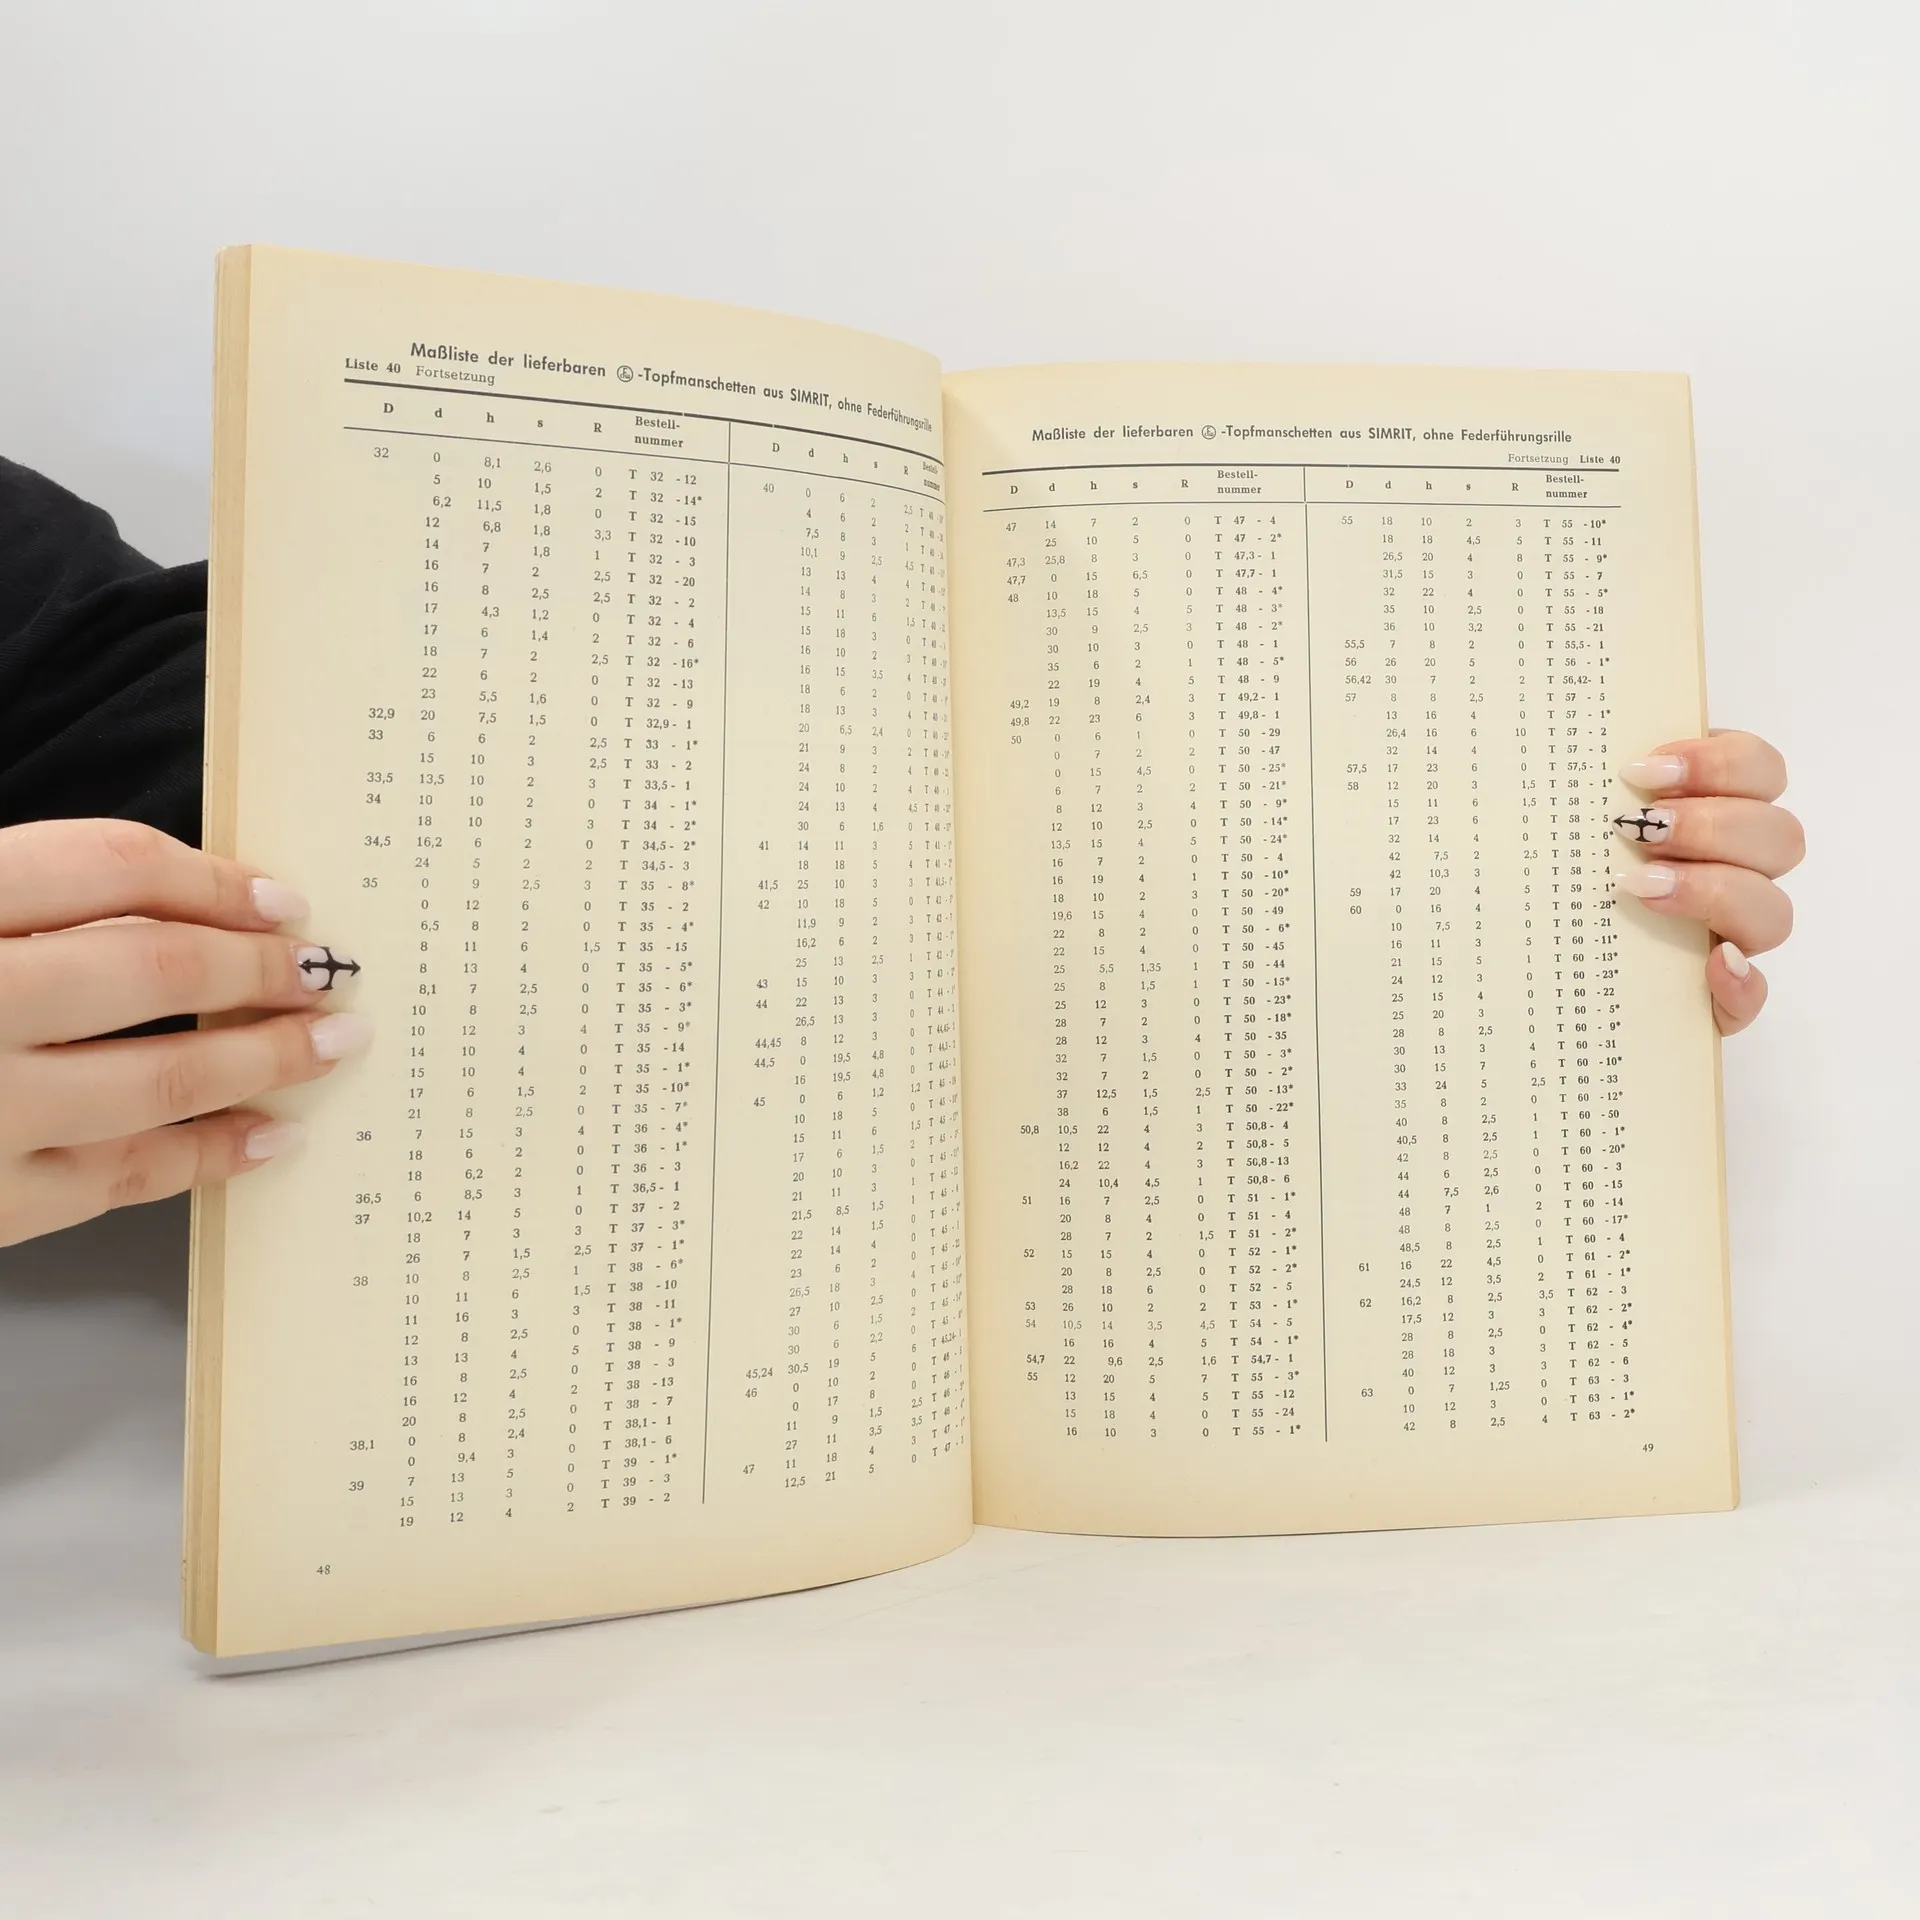 Maßliste der lieferbaren -Topfmanschetten aus SIMRIT, ohne Federführungsrille
Liste 40 Fortsetzung
D d h s R Bestell-
nummer
32 0 8,1 2,6 0 T 32 -12
5 10 1,5 2 T 32 -14*
6,2 11,5 1,8 0 T 32 -15
12 6,8 1,8 3,3 T 32 -10
14 7 1,8 1 T 32 - 3
16 7 2 2,5 T 32 -20
16 8 2,5 2,5 T 32 - 2
17 4,3 1,2 0 T 32 - 4
17 6 1,4 2 T 32 - 6
18 7 2 2,5 T 32 -16*
22 6 2 0 T 32 -13
23 5,5 1,6 0 T 32 - 9
32,9 20 7,5 1,5 0 T 32,9- 1
33 6 6 2 2,5 T 33 - 1*
15 10 3 2,5 T 33 - 2
33,5 13,5 10 2 3 T 33,5- 1
34 10 10 2 0 T 34 - 1*
18 10 3 3 T 34 - 2*
34,5 16,2 6 2 0 T 34,5- 2*
24 5 2 2 T 34,5- 3
35 0 9 2,5 3 T 35 - 8*
0 12 6 0 T 35 - 2
6,5 8 2 0 T 35 - 4*
8 11 6 1,5 T 35 -15
8 13 4 0 T 35 - 5*
8,1 7 2,5 0 T 35 - 6*
10 8 2,5 0 T 35 - 3*
10 12 3 4 T 35 - 9*
14 10 4 0 T 35 -14
15 10 4 0 T 35 - 1*
17 6 1,5 2 T 35 -10*
21 8 2,5 0 T 35 - 7*
36 7 15 3 4 T 36 - 4*
18 6 2 0 T 36 - 1*
18 6,2 2 0 T 36 - 3
36,5 6 8,5 3 1 T 36,5- 1
37 10,2 14 5 0 T 37 - 2
18 7 3 3 T 37 - 3*
26 7 1,5 2,5 T 37 - 1*
38 10 8 2,5 1 T 38 - 6*
10 11 6 1,5 T 38 -10
11 16 3 3 T 38 -11
12 8 2,5 0 T 38 - 1*
13 13 4 5 T 38 - 9
16 8 2,5 0 T 38 - 3
16 12 4 2 T 38 -13
20 8 2,5 0 T 38 - 7
38,1 0 8 2,4 0 T 38,1- 1
0 9,4 3 0 T 38,1- 6
39 7 13 5 0 T 39 - 1*
15 13 3 0 T 39 - 3
19 12 4 2 T 39 - 2
D d h s R Bestell-
nummer
40 0 6 2 2,5 T 40
4 6 2 2 T 40
7,5 8 3 1 T 40
10,1 9 2,5 4,5 T 40
13 13 4 4 T 40
14 8 3 2 T 40
15 11 6 1,5 T 40
15 18 3 0 T 40
16 10 2 3 T 40
16 15 3,5 4 T 40
18 6 2 0 T 40
18 13 3 4 T 40
20 6,5 2,4 0 T 40
21 9 3 2 T 40
24 8 2 4 T 40
24 10 2 4 T 40
24 13 4 4,5 T 40
30 6 1,6 0 T 40
41 14 11 3 5 T 41
18 18 5 4 T 41
41,5 25 10 3 3 T 41,5
42 10 18 5 0 T 42
11,9 9 2 3 T 42
16,2 6 2 3 T 42
25 13 2,5 1 T 42
43 15 10 3 3 T 43
44 22 13 3 0 T 44
26,5 13 3 0 T 44
44,45 8 12 3 0
44,5 0 19,5 4,8 0
16 19,5 4,8 0
45 0 6 1,2 1,2 T 45
10 18 5 0 T 45
15 11 6 1,5 T 45
17 6 1,5 2 T 45
20 10 3 0 T 45
21 11 3 1 T 45
21,5 8,5 1,5 1 T 45
22 14 1,5 0 T 45
22 14 4
23 6 2
26,5 18 3
27 10 2,5
30 6 1,5
30 6 2,2
45,24 30,5 19 5
46 0 10 2
0 17 8
11 9 1,5
27 11 3,5
47 11 18 4
12,5 21 5
48
Maßliste der lieferbaren -Topfmanschetten aus SIMRIT, ohne Federführungsrille
Fortsetzung Liste 40
D d h s R Bestell-
nummer
47 14 7 2 0 T 47 - 4
25 10 5 0 T 47 - 2*
47,3 25,8 8 3 0 T 47,3- 1
47,7 0 15 6,5 0 T 47,7- 1
48 10 18 5 0 T 48 - 4*
13,5 15 4 5 T 48 - 3*
30 9 2,5 3 T 48 - 2*
30 10 3 0 T 48 - 1
35 6 2 1 T 48 - 5*
22 19 4 5 T 48 - 9
49,2 19 8 2,4 3 T 49,2- 1
49,8 22 23 6 3 T 49,8- 1
50 0 6 1 0 T 50 -29
0 7 2 2 T 50 -47
0 15 4,5 0 T 50 -25*
6 7 2 2 T 50 -21*
8 12 3 4 T 50 - 9*
12 10 2,5 0 T 50 -14*
13,5 15 4 5 T 50 -24*
16 7 2 0 T 50 - 4
16 19 4 1 T 50 -10*
18 10 2 3 T 50 -20*
19,6 15 4 0 T 50 -49
22 8 2 0 T 50 - 6*
22 15 4 0 T 50 -45
25 5,5 1,35 1 T 50 -44
25 8 1,5 1 T 50 -15*
25 12 3 0 T 50 -23*
28 7 2 0 T 50 -18*
28 12 3 4 T 50 -35
32 7 1,5 0 T 50 - 3*
32 7 2 0 T 50 - 2*
37 12,5 1,5 2,5 T 50 -13*
38 6 1,5 1 T 50 -22*
50,8 10,5 22 4 3 T 50,8- 4
12 12 4 2 T 50,8- 5
16,2 22 4 3 T 50,8-13
24 10,4 4,5 1 T 50,8- 6
51 16 7 2,5 0 T 51 - 1*
20 8 4 0 T 51 - 4
28 7 2 1,5 T 51 - 2*
52 15 15 4 0 T 52 - 1*
20 8 2,5 0 T 52 - 2*
28 18 6 0 T 52 - 5
53 26 10 2 2 T 53 - 1*
54 10,5 14 3,5 4,5 T 54 - 5
16 16 4 5 T 54 - 1*
54,7 22 9,6 2,5 1,6 T 54,7- 1
55 12 20 5 7 T 55 - 3*
13 15 4 5 T 55 -12
15 18 4 0 T 55 -24
16 10 3 0 T 55 - 1*
D d h s R Bestell-
nummer
55 18 10 2 3 T 55 -10*
18 18 4,5 5 T 55 -11
26,5 20 4 8 T 55 - 9*
31,5 15 3 0 T 55 - 7
32 22 4 0 T 55 - 5*
35 10 2,5 0 T 55 -18
36 10 3,2 0 T 55 -21
55,5 7 8 2 0 T 55,5- 1
56 26 20 5 0 T 56 - 1*
56,42 30 7 2 2 T 56,42- 1
57 8 8 2,5 2 T 57 - 5
13 16 4 0 T 57 - 1*
26,4 16 6 10 T 57 - 2
32 14 4 0 T 57 - 3
57,5 17 23 6 0 T 57,5- 1
58 12 20 3 1,5 T 58 - 1*
15 11 6 1,5 T 58 - 7
17 23 6 0 T 58 - 5
32 14 4 0 T 58 - 6*
42 7,5 2 2,5 T 58 - 3
42 10,3 3 0 T 58 - 4
59 17 20 4 5 T 59 - 1*
60 0 16 4 5 T 60 -28*
10 7,5 2 0 T 60 -21
16 11 3 5 T 60 -11*
21 15 5 1 T 60 -13*
24 12 3 0 T 60 -23*
25 15 4 0 T 60 -22
25 20 3 0 T 60 - 5*
28 8 2,5 0 T 60 - 9*
30 13 3 4 T 60 -31
30 15 7 6 T 60 -10*
33 24 5 2,5 T 60 -33
35 8 2 0 T 60 -12*
40 8 2,5 1 T 60 -50
40,5 8 2,5 1 T 60 - 1*
42 8 2,5 0 T 60 -20*
44 6 2,5 0 T 60 - 3
44 7,5 2,6 0 T 60 -15
48 7 1 2 T 60 -14
48 8 2,5 0 T 60 -17*
48,5 8 2,5 1 T 60 - 4
61 16 22 4,5 0 T 61 - 2*
24,5 12 3,5 2 T 61 - 1*
62 16,2 8 2,5 3,5 T 62 - 3
17,5 12 3 3 T 62 - 2*
28 8 2,5 0 T 62 - 4*
28 18 3 3 T 62 - 5
40 12 3 3 T 62 - 6
63 0 7 1,25 0 T 63 - 3
10 12 3 0 T 63 - 1*
42 8 2,5 4 T 63 - 2*
49